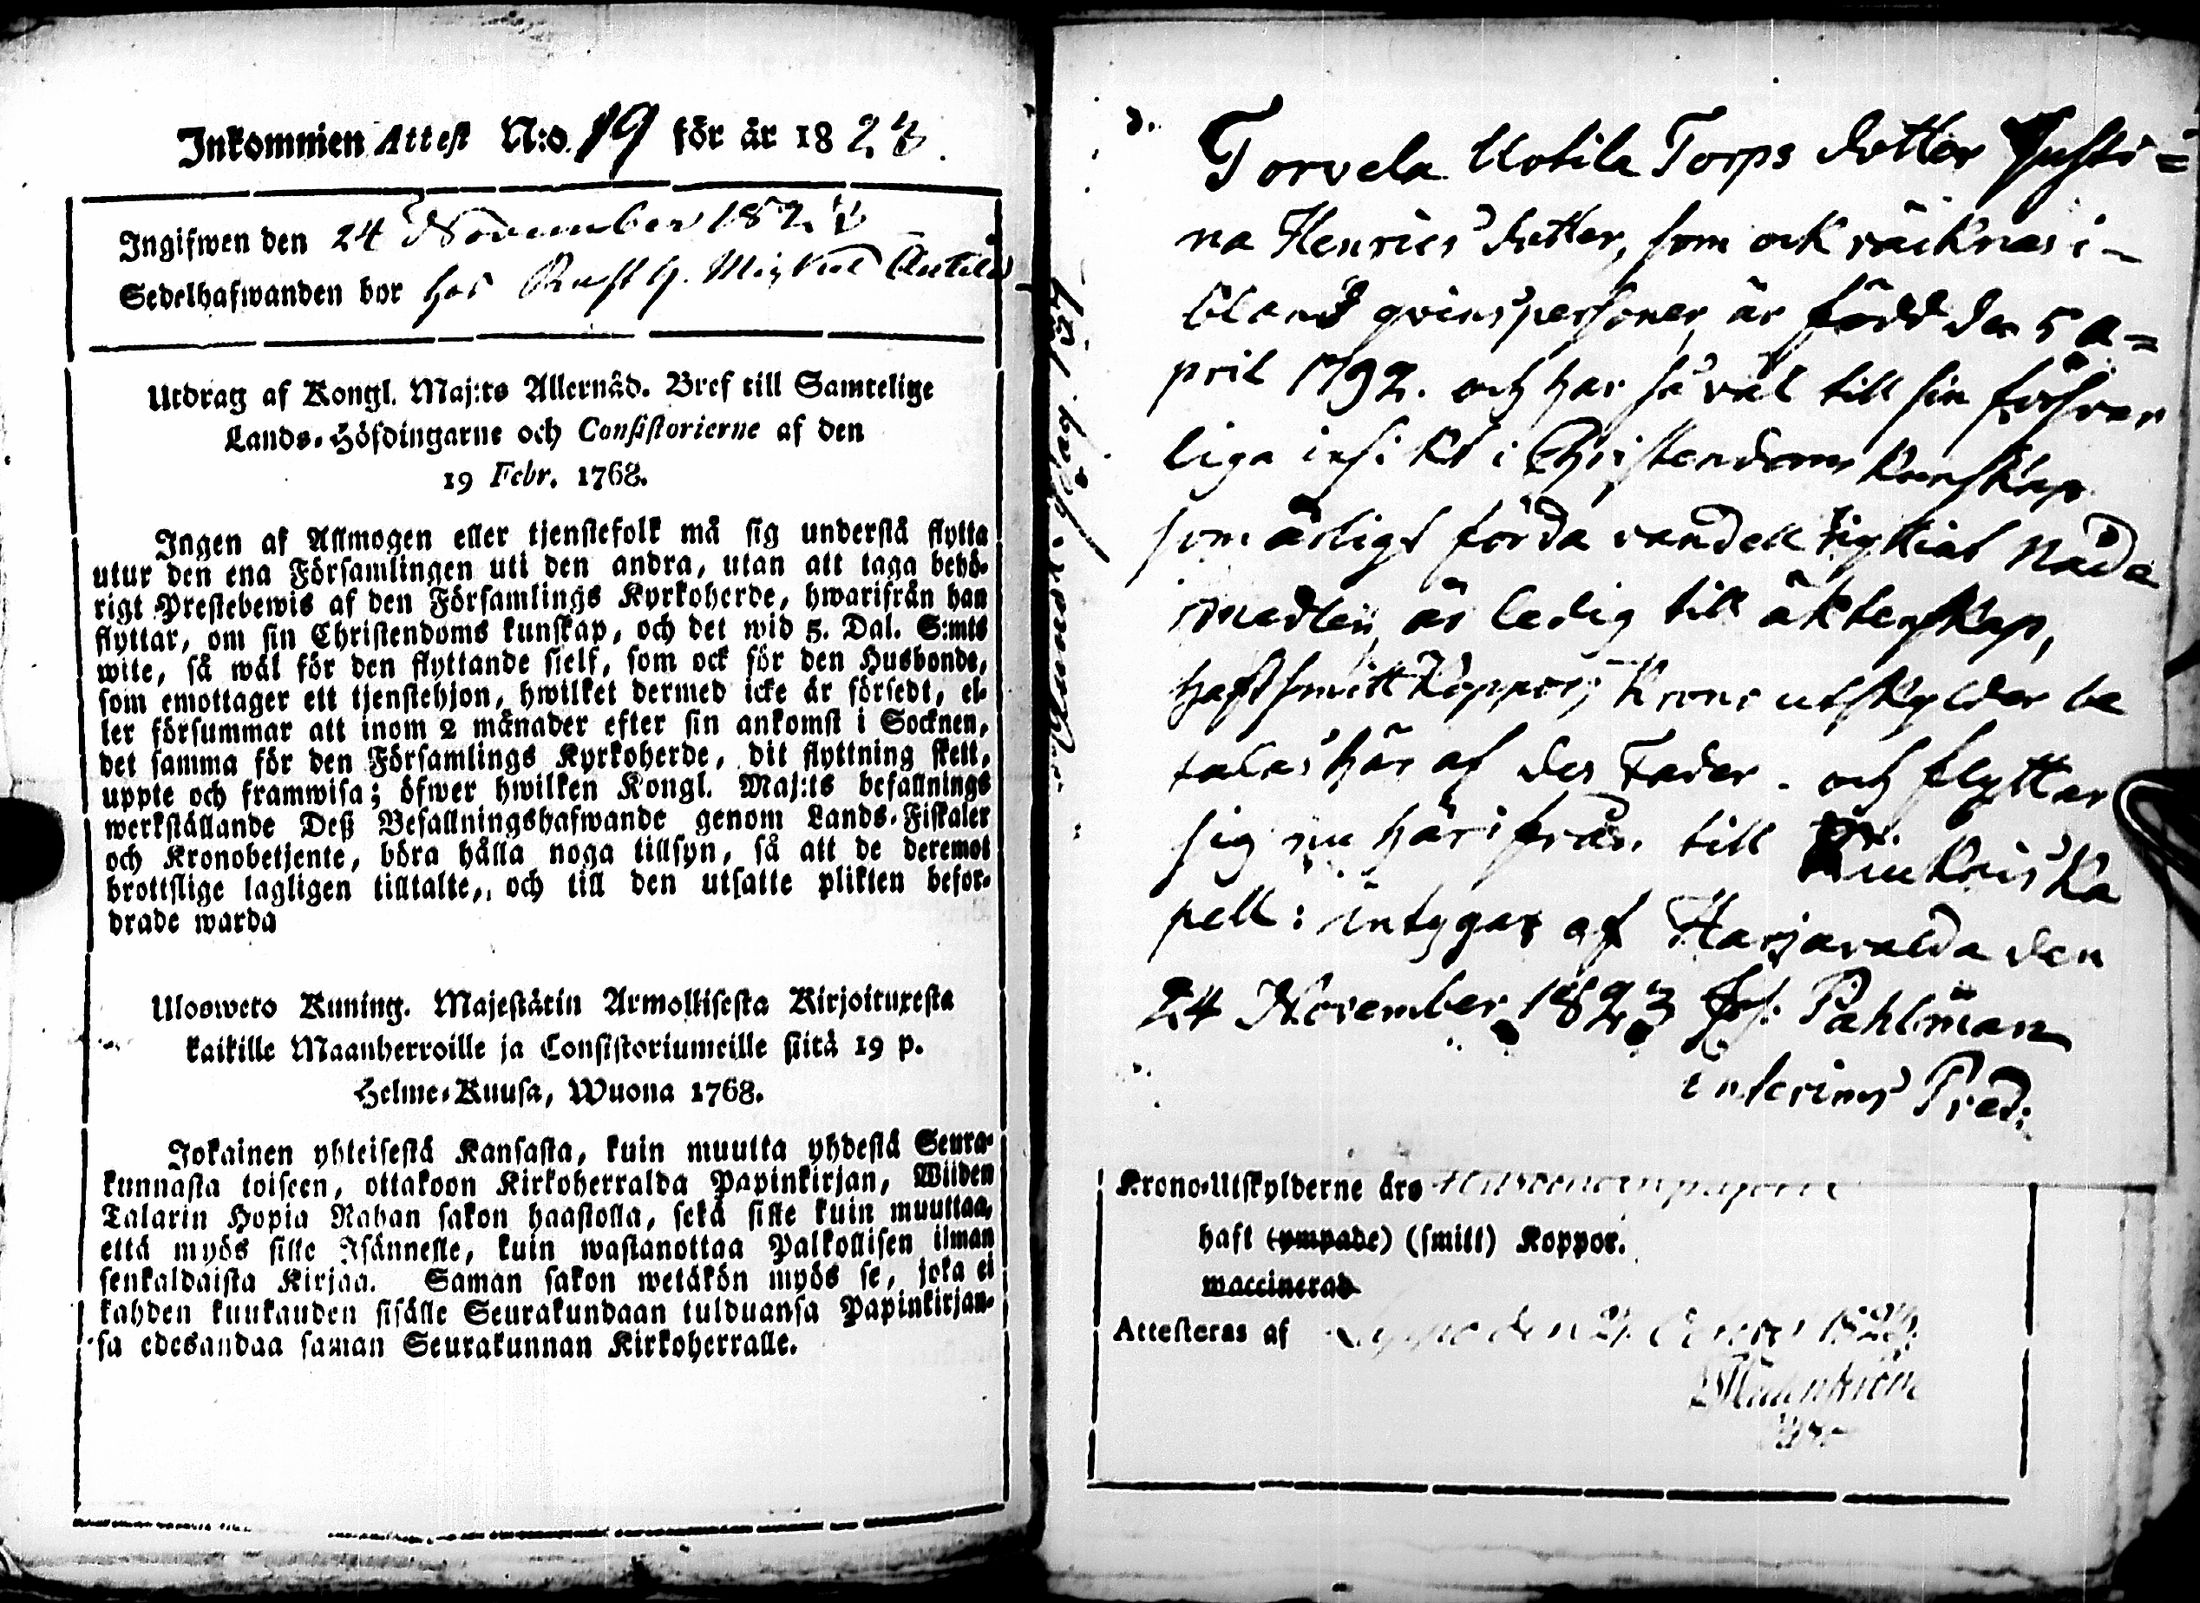 Inkommen Attest N:o. 19 för år 1823.
Ingifwen den 24 November 1823
Sedelhafwanden bor hos Rusth. Mickel Anttila
Utdrag af Kongl. Maj:ts Allernåd. Bref till Samtelige
Lands-Höfdingarne och Consistorierne af den
19 Febr. 1768.
Ingen af Allmogen eller tjenstefolk må sig understå flytta
utur den ena Församlingen uti den andra, utan att taga behö-
rigt Prestebewis af den Församlings Kyrkoherde, hwarifrån han
flyttar, om sin Christendoms kunskap, och det wid 5. Dal. S:mts
wite, så wäl för den flyttande sielf, som ock för den Husbonde,
som emottager ett tjenstehjon, hwilket dermed icke är försedt, el-
ler försummar att inom 2 månader efter sin ankomst i Socknen,
det samma för den Församlings Kyrkoherde, dit flyttning skett,
uppte och framwisa; öfwer hwilken Kongl. Maj:ts befallnings
werkställande Deß Befallningshafwande genom Lands-Fiskaler
och Kronobetjente, böra hålla noga tillsyn, så att de deremot
brottslige lagligen tilltalte, och till den utsatte plikten befor-
drade warda
Ulosweto Kuning. Majestätin Armollisesta Kirjoituxesta
kaikille Maanherroille ja Consistoriumeille siitä 19 p.
Helme-Kuusa, Wuona 1768.
Jokainen yhteisestä Kansasta, kuin muutta yhdestä Seura-
kunnasta toiseen, ottakoon Kirkoherralda Papinkirjan, Wiiden
Talarin Hopia Rahan sakon haastolla, sekä sille kuin muuttaa,
että myös sille Isännelle, kuin wastanottaa Palkollisen ilman
senkaldaista Kirjaa. Saman sakon wetäkön myös se, joka ei
kahden kuukauden sisälle Seurakundaan tulduansa Papinkirjan-
sa edesandaa saman Seurakunnan Kirkoherralle.
Torvela Uotila Torps dotter Justi=
na Henrics dotter, som ock räcknas i-
bland qvinspersoner, är född den 5 A=
pril 1792. och har så väl till sin försvar
liga insikt i Christendoms Kunskap
som ärligt förda vandell nyttiat Nåde
medlen, är ledig till äktenskap,
haft smitt Koppor; Krono utskylder be
talas här af des Fader. och flyttar
sig nu härifrån till Kiukais Ka
pell: intygar af Harjavalda den
24 November 1823 Joh: Pahlman
interims Pred:
Krono-Utskylderne äro
haft (ympade) (smitt) Koppor.
waccinerad
Attesteras af den 21 October 182